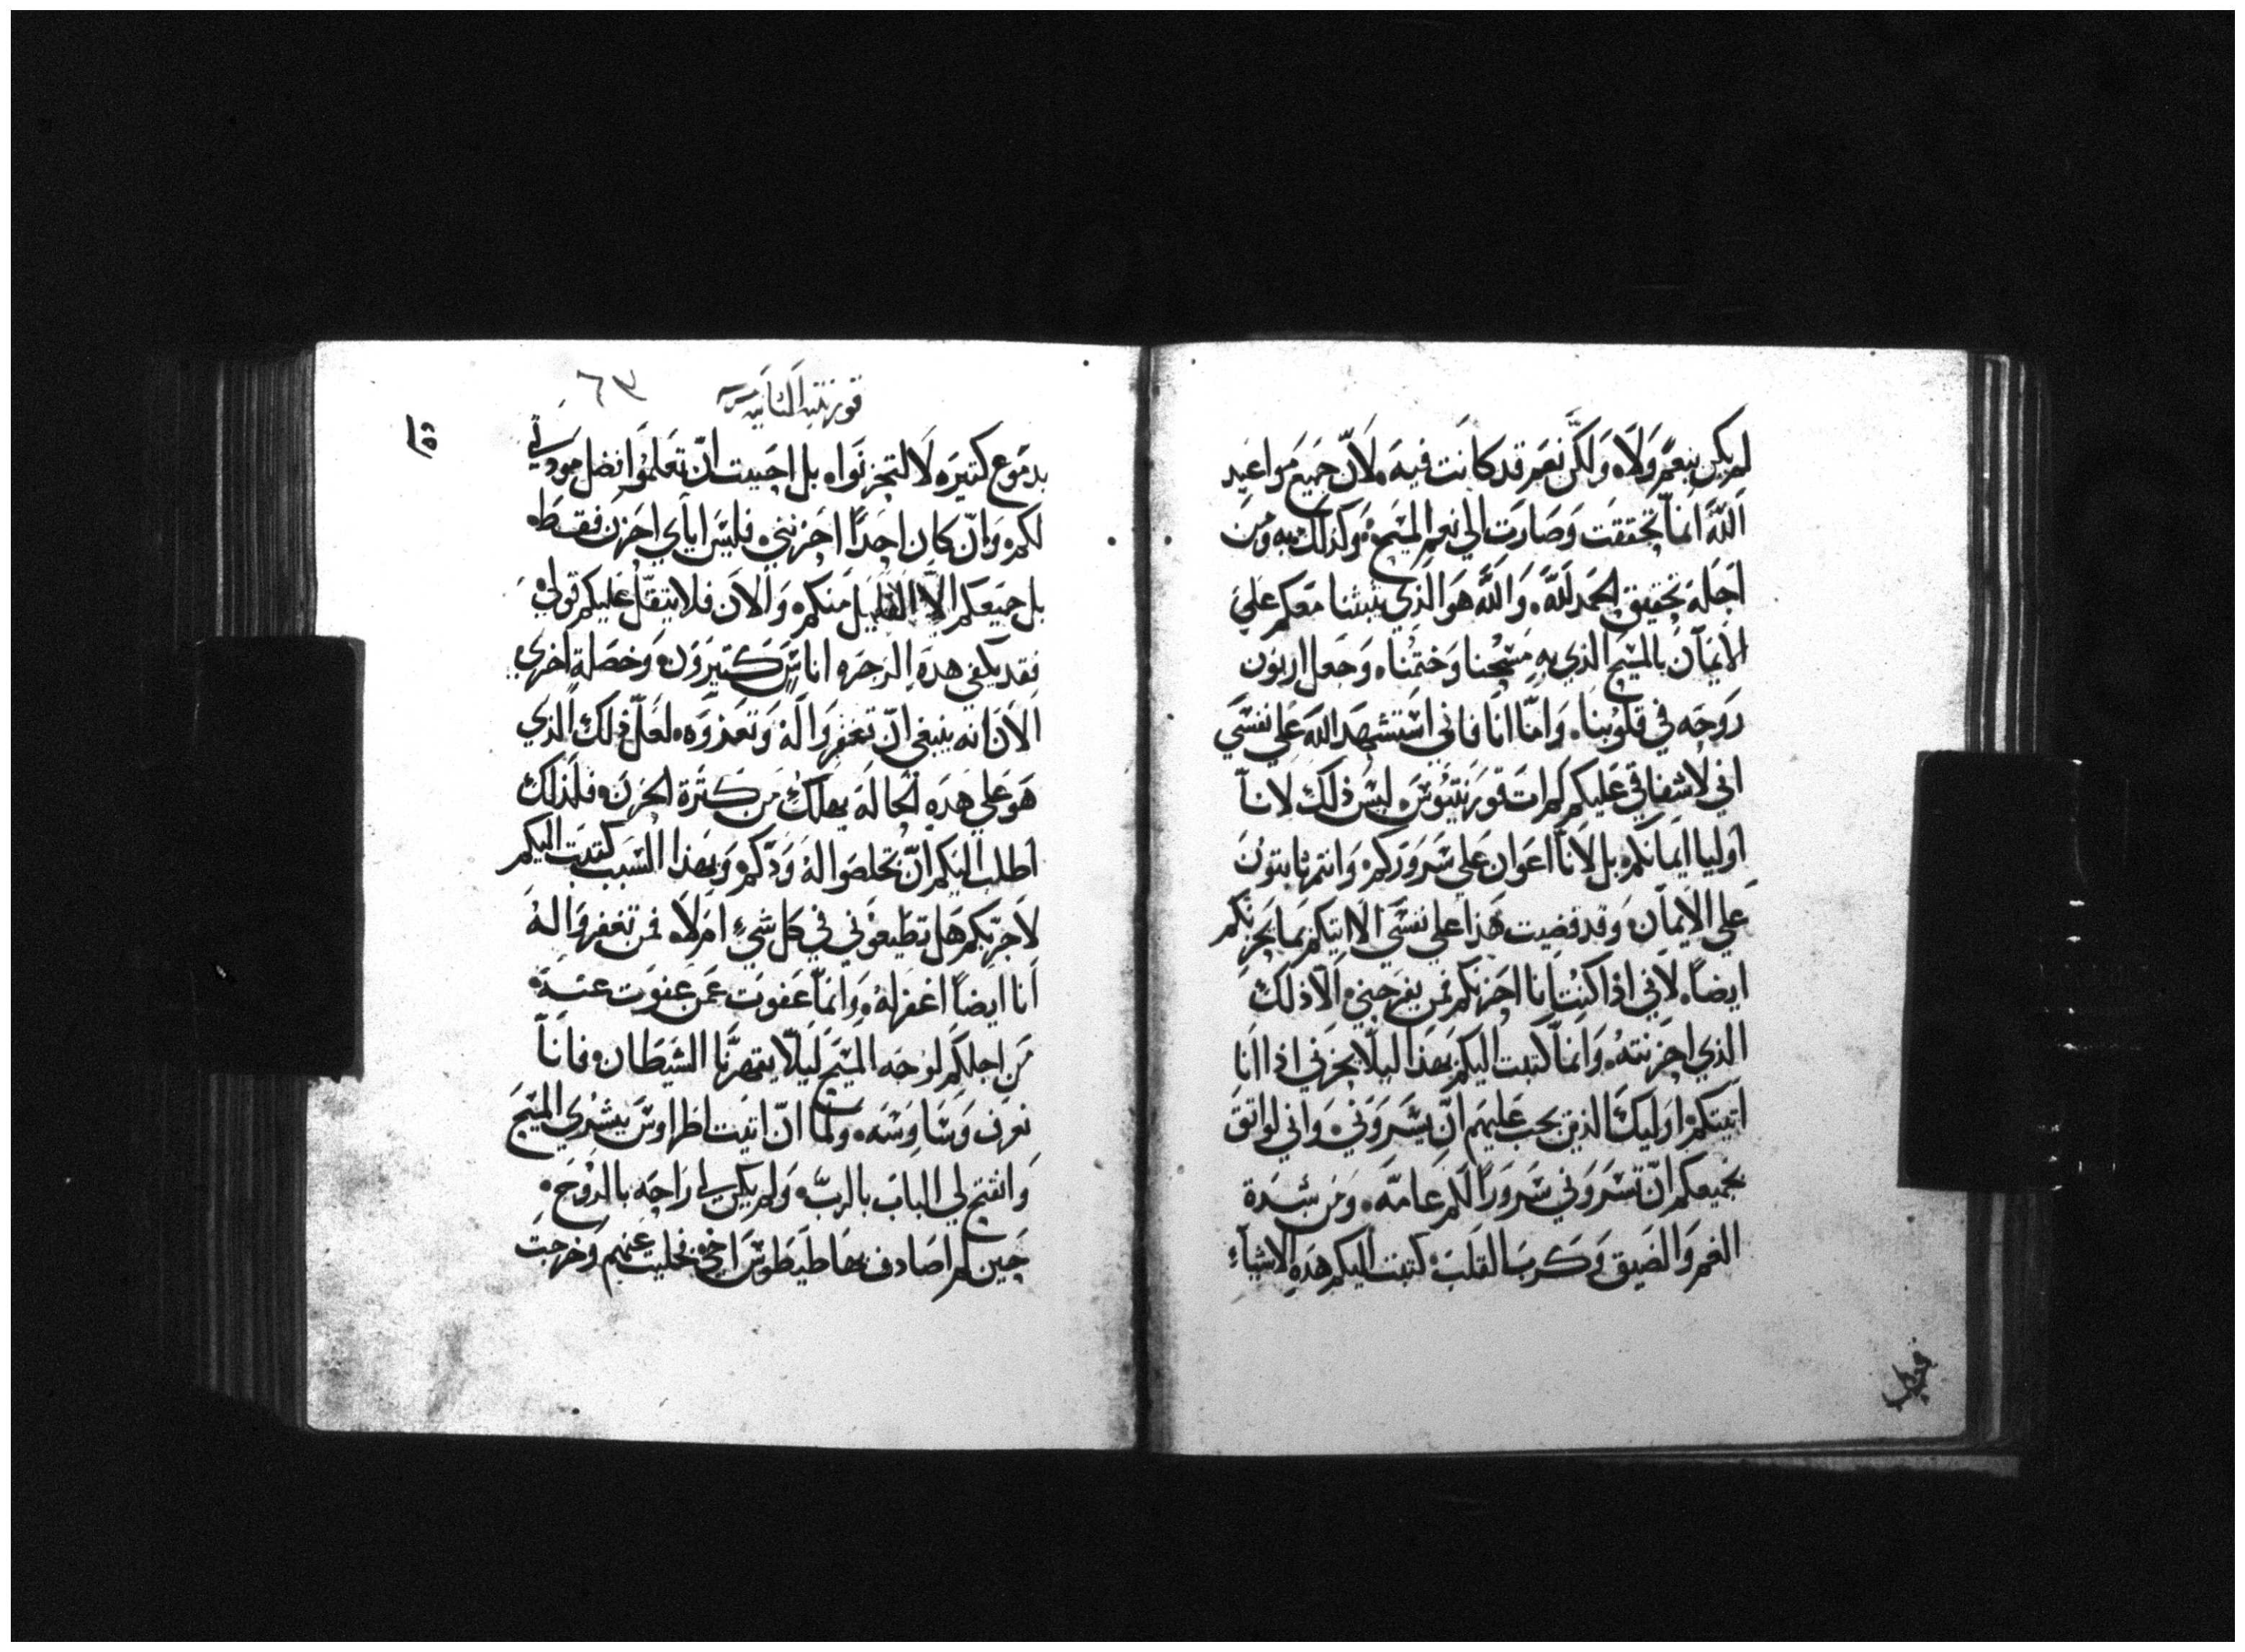 لم يكن بنعم ولاه ولكن نعم قد كانت فيه ه لان جميع مواعيد
الله انما تحققت وصارت الي نعم المسيح ه وكذلك به ومن
اجله تحقيق الحمد لله ه والله هو الذي يثبتنا معكم علي
الايمان بالمسيح الذي به مسحنا وختمنا ه وجعل اربون
روحه في قلوبنا ه واما انا فاني استشهد الله علي نفسي
اني لاشفاقي عليكم لم ات قورنتيوس ه ليس ذلك لانا
اوليا ايمانكم ه بل لانا اعوان علي سروركم ه وانتم ثابتون
علي الايمان ه وقد قضيت هذا علي نفسي الا اتيكم بما يحزنكم
ايضا ه لاني اذا كنت انا احزنكم فمن يفرحني ه الا ذلك
الذي احزنته ه وانما كتبت اليكم بهذا ليلا يحزني اذا انا
اتيتكم ه اوليك الذين يجب عليهم ان يسروني ه واني لواثق
بجميعكم ان تسروني سرورا لكم عامه ه ومن شدة
الغم والضيق وكرب القلب ه كتبت اليكم هذه الاشياء
قورنتيه الثانيه
٦٣
بدموع كتيره لا لتحزنوا ه بل احببت ان تعلموا فضل مودتي
لكم ه وان كان احدا احزنني ه فليس اياي احزن فقط ه
بل جميعكم الا القليل منكم ه والان فلا يتقل عليكم قولي ه
فقد يكفي هده الزجره اناس كتيرون ه وخصلة اخري
الان انه ينبغي ان تغفروا له وتعذروه ه لعل ذلك الذي
هو علي هده الحاله يهلك من كثرة الحزن ه فلذلك
اطلب اليكم ان تخلصوا له ودكم ه وبهذا السبب كتبت اليكم
لاجربكم هل تطيعوني في كل شيء ام لا ه فمن تغفروا له
انا ايضا اغفر له ه وانما عفوت عمن عفوت عنه ه
من اجلكم لوجه المسيح ليلا يقهرنا الشيطان ه فانا
نعرف وساوسه ه ولما ان اتيت اطراوس ببشري المسيح
وانفتح لي الباب بالرب ه ولم يكن لي راحه بالروح ه
حين لم اصادف بها طيطوس اخي ه فخليت عنهم وخرجت